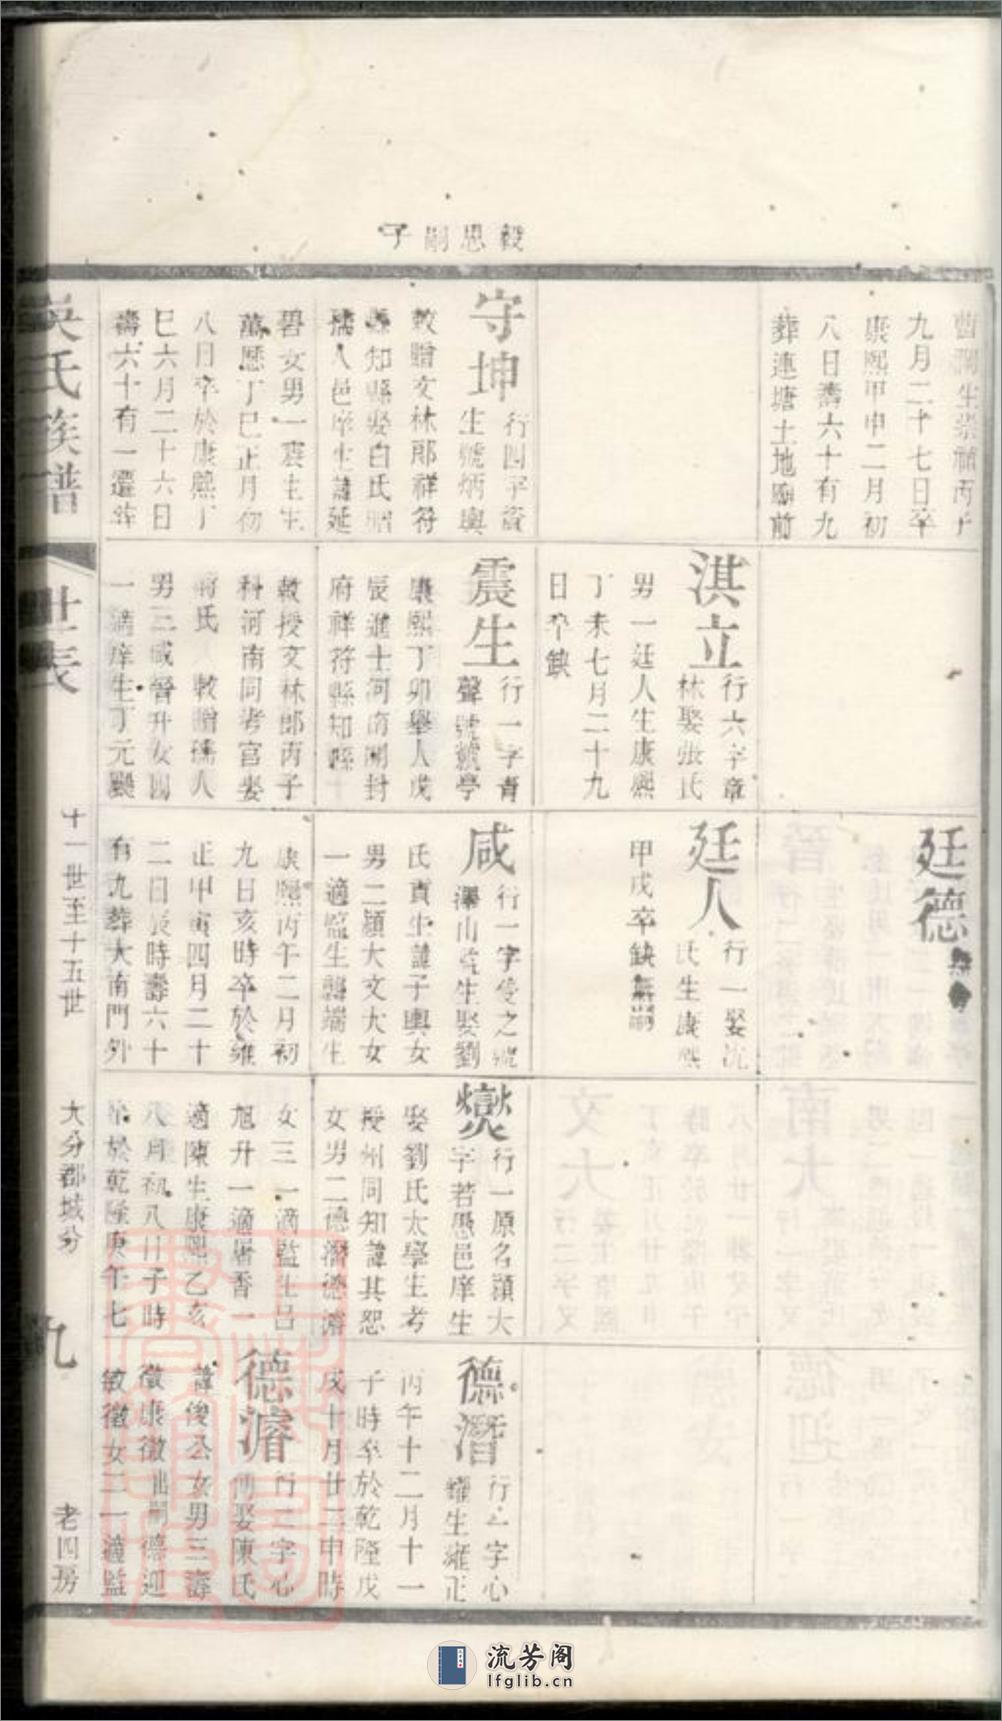 毅思嗣子
九月二十七日卒
康熙甲申二月初
八日壽六十有九
葬連塘土地廟前
守坤
行四字資
生號炳輿
敕贈文林郎祥符
縣知縣娶白氏贈
孺人邑庠生諱延
碧女男一震生生
萬歷丁巳正月初
八日卒於康熙丁
巳六月二十六日
壽六十有一遷葬
淇立
行六字章
林娶張氏
男一廷人生康熙
丁未七月二十九
日卒缺
震生
行一字青
聲號虩亭
康熙丁卯舉人戊
辰進士河南開封
府祥符縣知縣
敕授文林郎丙子
科河南同考官娶
蔣氏 敕贈孺人
男三咸晉升女四
一適庠生丁元颺
廷德
廷人
行一娶沈
氏生康熙
甲戌卒缺無嗣
咸
行一字受之號
澤山監生娶劉
氏貢生諱子輿女
男二潁大文大女
一適監生龔端生
康熙丙午二月初
九日亥時卒於雍
正甲寅四月二十
二日辰時壽六十
有九葬大南門外
爕
行一原名潁大
字若愚邑庠生
娶劉氏太學生考
授州同知諱其恕
女男二德潛德濬
女三一適監生呂
旭升一適屠香一
適陳生康熙乙亥
八月初八日子時
卒於乾隆庚午七
德潛
行一字心
耀生雍正
丙午十二月十一
子時卒於乾隆戊
戌十月廿二申時
德濬
行二字心
傅娶陳氏
諱俊公女男三壽
徵康徵出嗣德迎
敏徵女二一適監
吳氏族譜
世表
十一世至十五世
大分郡城分
九
老四房
流芳阁
lfglib.cn